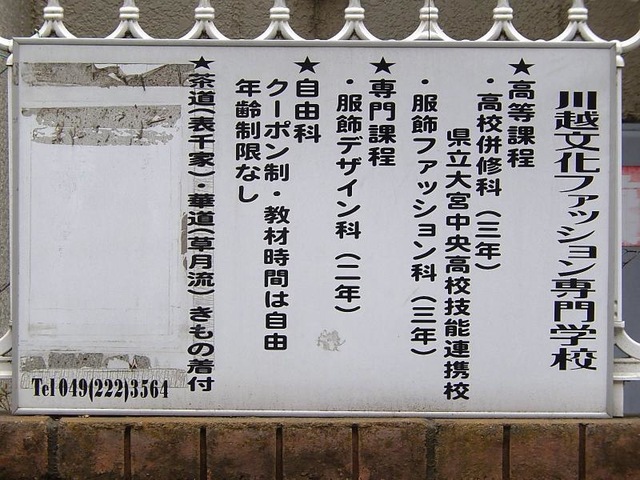 川越文化ファッション専門学校
★高等課程
・高校併修科（三年）
県立大宮中央高校技能連携校
・服飾ファッション科（三年）
★専門課程
・服飾デザイン科（二年）
★自由科
クーポン制・教材時間は自由
年齢制限なし
★茶道(表千家)・華道(草月流) きもの着付
Tel 049(222)3564